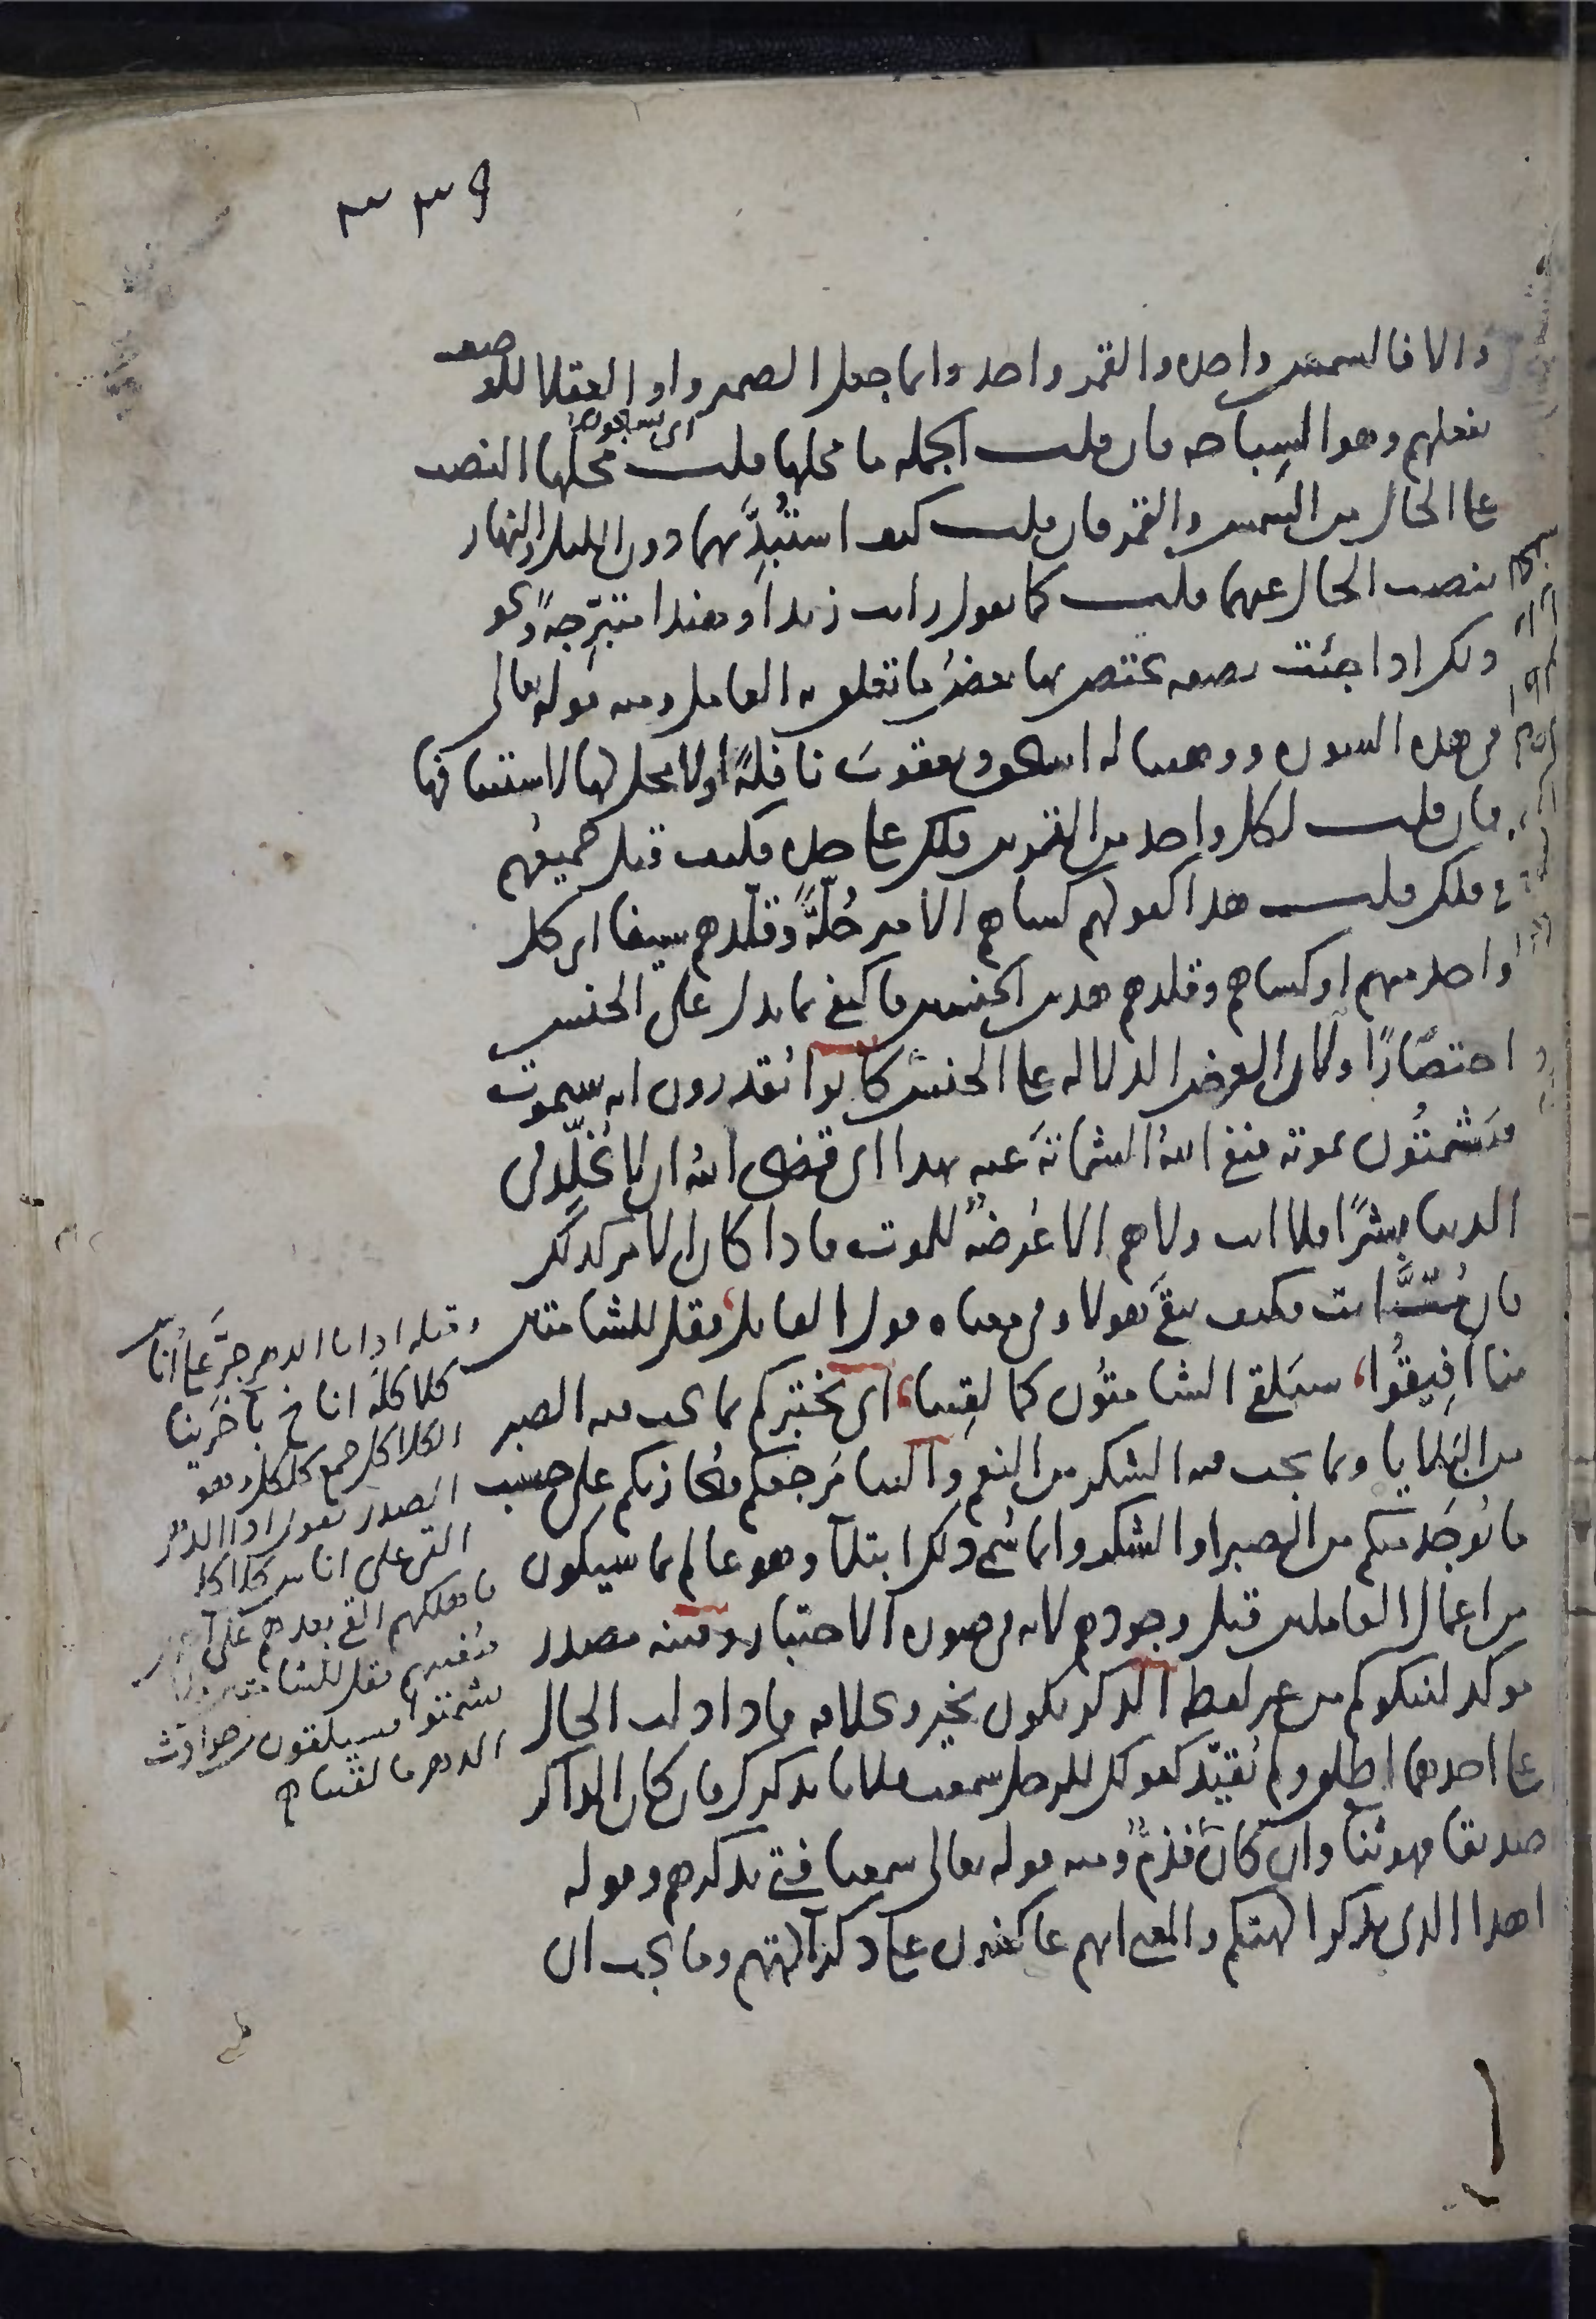 ٣٣٩
والا فالشمس واحدة والقمر واحد وانما جعل الضمير واو العقلا للوصف
بفعلهم وهو السباحه فان قلت الجمله ما محلها قلت محلها النصب
اى يسبحون
على الحال من الشمس والقمر فان قلت كيف استبدّ بهما دون الليل والنهار
بنصب الحال عنهما قلت كما تقول رايت زيدا وهندا متبرّجةً ونحو
ذلك اذا جئت بصفه يختص بها بعضُ ما تعلق به العامل ومنه قوله تعالى
فى هذه السوره ووهبنا له اسحق ويعقوبَ نافلةً اولا محل لها لاستئنافها
فان قلت لكل واحد من القمرين فلك على حده فكيف قيل جميعُهم
فى فلك قلت هذا كقولهم كساهم الامير حُلّةً وقلّدهم سيفا اى كل
واحد منهم او كساهم وقلدهم هذين الجنسين فاكتفى بما يدل على الجنس
اختصارًا ولان الغرض الدلاله على الجنس كانوا يُقدرون انه سيموت
فيَشمتُون بموته فنفى اللهُ الشماتةَ عنه بهذا اى قضى الله ان لا يُخلّد فى
الدنيا بشرًا فلا انت ولا هم الا عُرضةً للموت فاذا كان الامر كذلك
فان مُتَّ انت فكيف يبقى هولا وفى معناه قول القايل فقل للشامتين
منا افِيقُوا، سيَلقى الشامتُون كما لقِينا، اى نختبركم بما يجب فيه الصبر
من البَلايا وبما يجب فيه الشكر من النعم والينا مَرجعكم فنُجازيكم على حسب
ما يُوجَد منكم من الصبر او الشكر وانما سُمى ذلك ابتلآ وهو عالم بما سيكون
من اعمال العاملين قبل وجودهم لانه فى صوره الاختبار وفتنه مصدر
موكد لنبلوكم من غير لفظه الذكر يكون بخير وبخلافه فاذا دلت الحال
على احدهما اطلق ولم يُقيّد كقولك للرجل سمعت فلانا يذكرك فان كان الذاكر
صديقا فهو ثنا وان كان عدوا فذمٌّ ومنه قوله تعالى سمعنا فتى يذكرهم وقوله
اهذا الذى يذكر الهتكم والمعنى انهم عاكفون على ذكر آلهتهم وما يجب ان
وقبله اذا ما الدهر جرَّ على اُناس
كلاكلَه اناخ بآخَرينا
الكلاكل جمع كلكل وهو
الصدر يقول اذا الدهر
القى على اناس كلاكله
فاهلكهم القى بعدهم على
غيرهم فقل للشامتين
يشمتوا سيلقون من حوادث
الدهر ما لقيناه